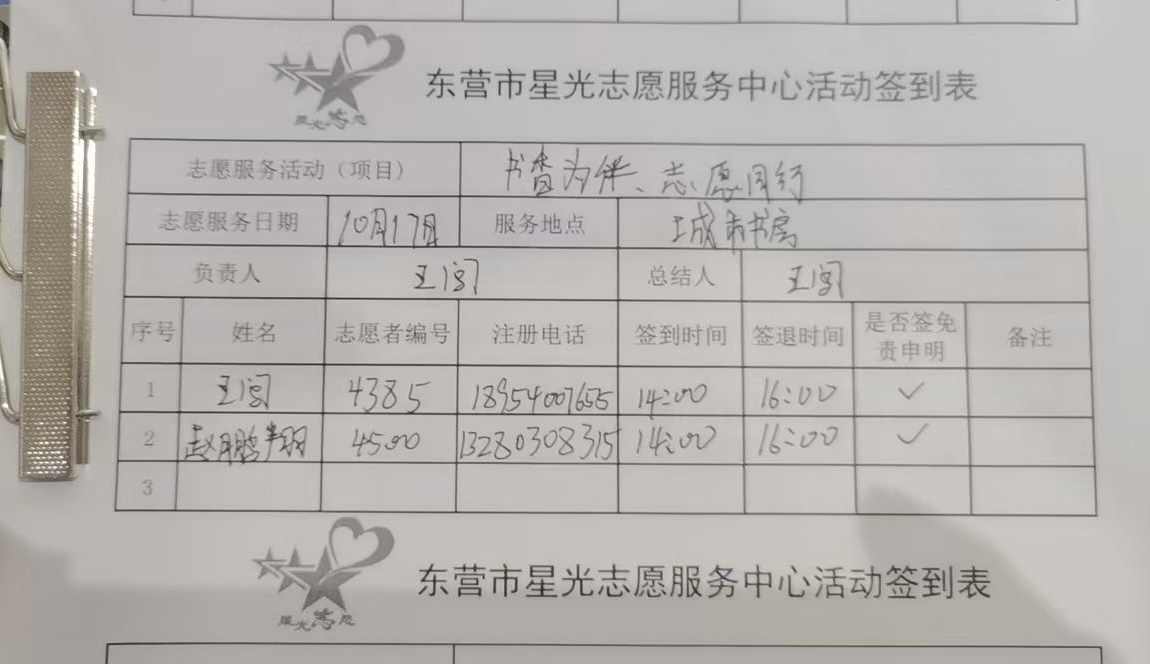 星光志愿
东营市星光志愿服务中心活动签到表
志愿服务活动（项目） 书香为伴、志愿同行
志愿服务日期 10月17日 服务地点 城市书房
负责人 王闫 总结人 王闫
序号 姓名 志愿者编号 注册电话 签到时间 签退时间 是否签免责申明 备注
1 王闫 4385 18954007655 14:00 16:00 ✓
2 赵鹏翔 4500 13280308315 14:00 16:00 ✓
3
星光志愿
东营市星光志愿服务中心活动签到表